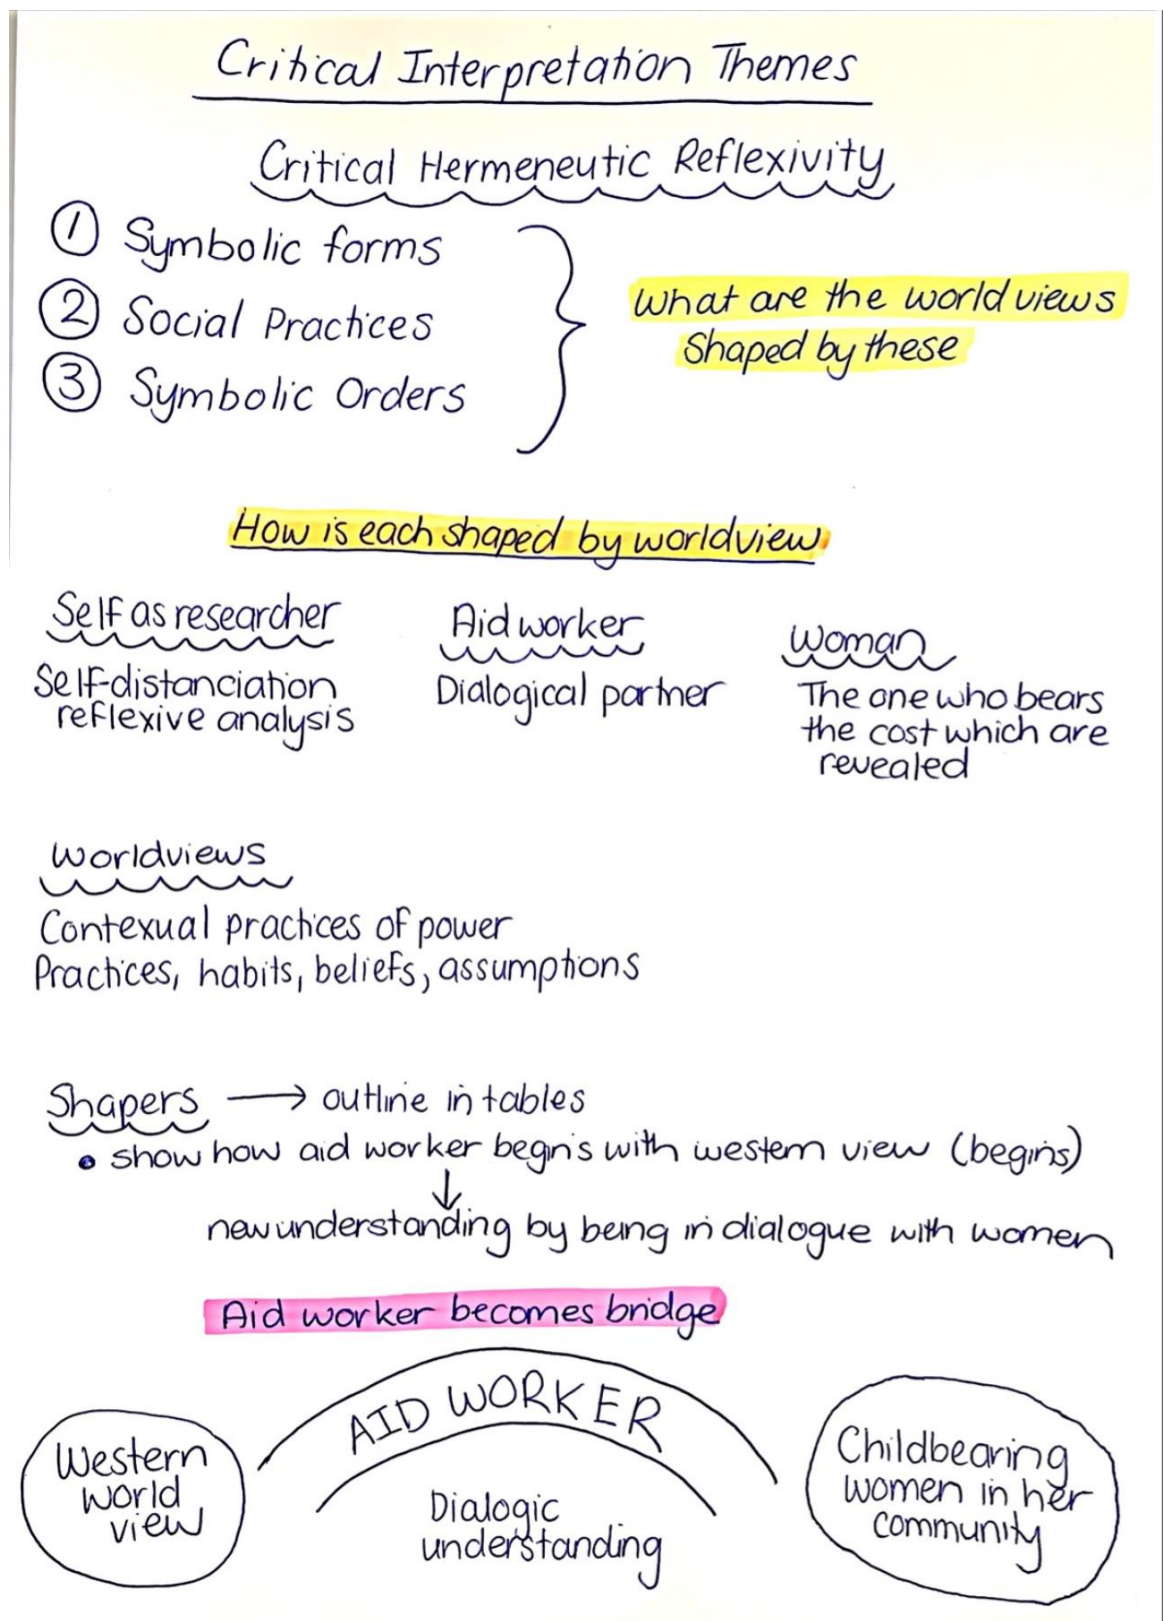 Critical Interpretation Themes
Critical Hermeneutic Reflexivity
① Symbolic forms
② Social Practices
③ Symbolic Orders
What are the world views
Shaped by these
How is each shaped by worldview
Self as researcher
Self-distanciation
reflexive analysis
Aid worker
Dialogical partner
Woman
The one who bears
the cost which are
revealed
Worldviews
Contexual practices of power
Practices, habits, beliefs, assumptions
Shapers → outline in tables
• show how aid worker begins with western view (begins)
↓
new understanding by being in dialogue with women
Aid worker becomes bridge
AID WORKER
Western
world
view
Dialogic
understanding
Childbearing
women in her
community